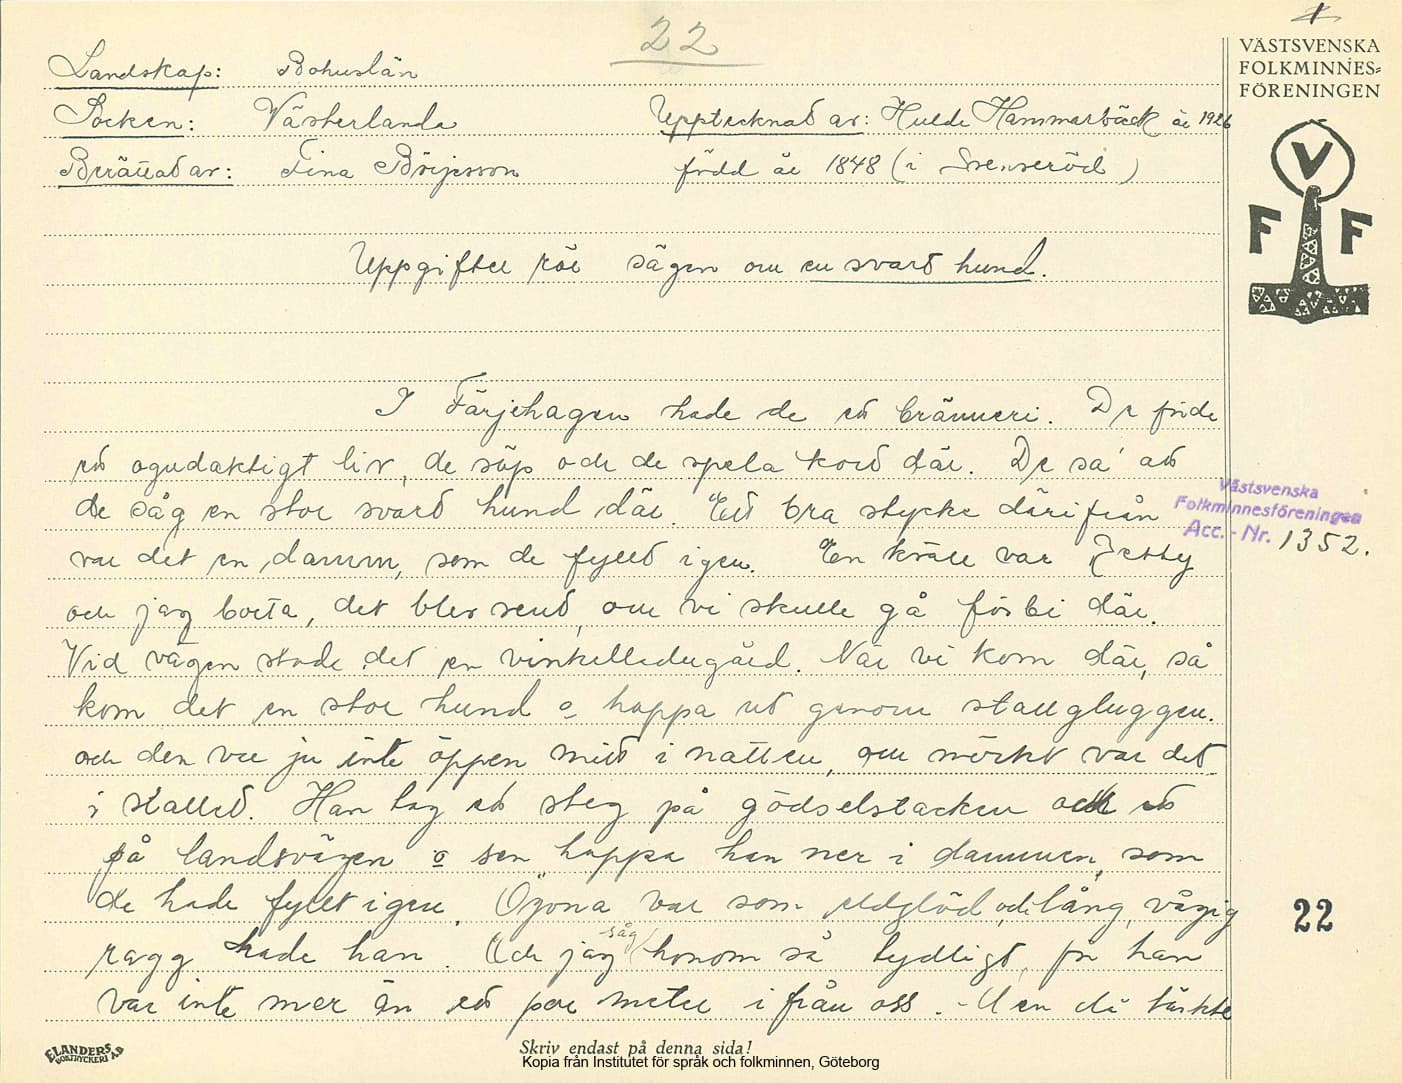 22
Landskap: Bohuslän
VÄSTSVENSKA
FOLKMINNES-
FÖRENINGEN
Socken: Västerlanda Upptecknad av: Hulda Hammarbäck år 1926
Berättad av: Tina Börjesson född år 1848 (i Svenseröd)
V
F F
Uppgifter rör sägen om en svart hund.
I Färjehagen hade de ett bränneri. De förde
ett ogudaktigt liv, de söp och de spela kort där. De sa' att
de såg en stor svart hund där. Ett bra stycke därifrån
Västsvenska
Folkminnesföreningen
Acc. - Nr. 1352.
var det en damm, som de fyllt igen. En kväll var Jetty
och jag borta, det blev sent, om vi skulle gå förbi där.
Vid vägen stode det en vinkelladugård. När vi kom där, så
kom det en stor hund o hoppa ut genom stallgluggen.
och den var ju inte öppen mitt i natten, om mörkt var det
i stallet. Han tog ett steg på gödselstacken och ett
på landsvägen o sen hoppa han ner i dammen, som
de hade fyllt igen. Ögona var som eldglöd, och lång, vågig
ragg hade han. Och jag såg honom så tydligt, för han
var inte mer än ett par meter ifrån oss. - Men di tänkte
22
ELANDERS
BOKTRYCKERI A.B
Skriv endast på denna sida!
Kopia från Institutet för språk och folkminnen, Göteborg